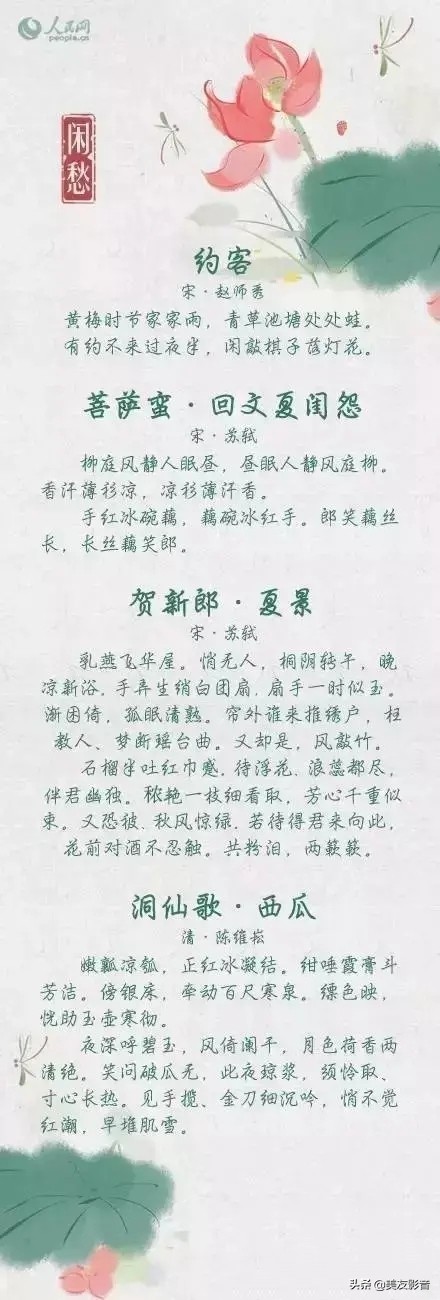 人民网
people.cn
闲愁
约客
宋·赵师秀
黄梅时节家家雨，青草池塘处处蛙。
有约不来过夜半，闲敲棋子落灯花。
菩萨蛮·回文夏闺怨
宋·苏轼
柳庭风静人眠昼，昼眠人静风庭柳。
香汗薄衫凉，凉衫薄汗香。
手红冰碗藕，藕碗冰红手。郎笑藕丝
长，长丝藕笑郎。
贺新郎·夏景
宋·苏轼
乳燕飞华屋。悄无人，桐阴转午，晚
凉新浴。手弄生绡白团扇，扇手一时似玉。
渐困倚，孤眠清熟。帘外谁来推绣户，枉
教人、梦断瑶台曲。又却是，风敲竹。
石榴半吐红巾蹙。待浮花、浪蕊都尽，
伴君幽独。秾艳一枝细看取，芳心千重似
束。又恐被、秋风惊绿，若待得君来向此，
花前对酒不忍触。共粉泪，两簌簌。
洞仙歌·西瓜
清·陈维崧
嫩瓤凉瓠，正红冰凝结。绀唾霞膏斗
芳洁。傍银床，牵动百尺寒泉。缥色映，
恍助玉壶寒彻。
夜深呼碧玉，风倚阑干，月色荷香两
清绝。笑问破瓜无，此夜琼浆，须怜取、
寸心长热。见手揽、金刀细沉吟，悄不觉
红潮，早堆肌雪。
头条@美友影音